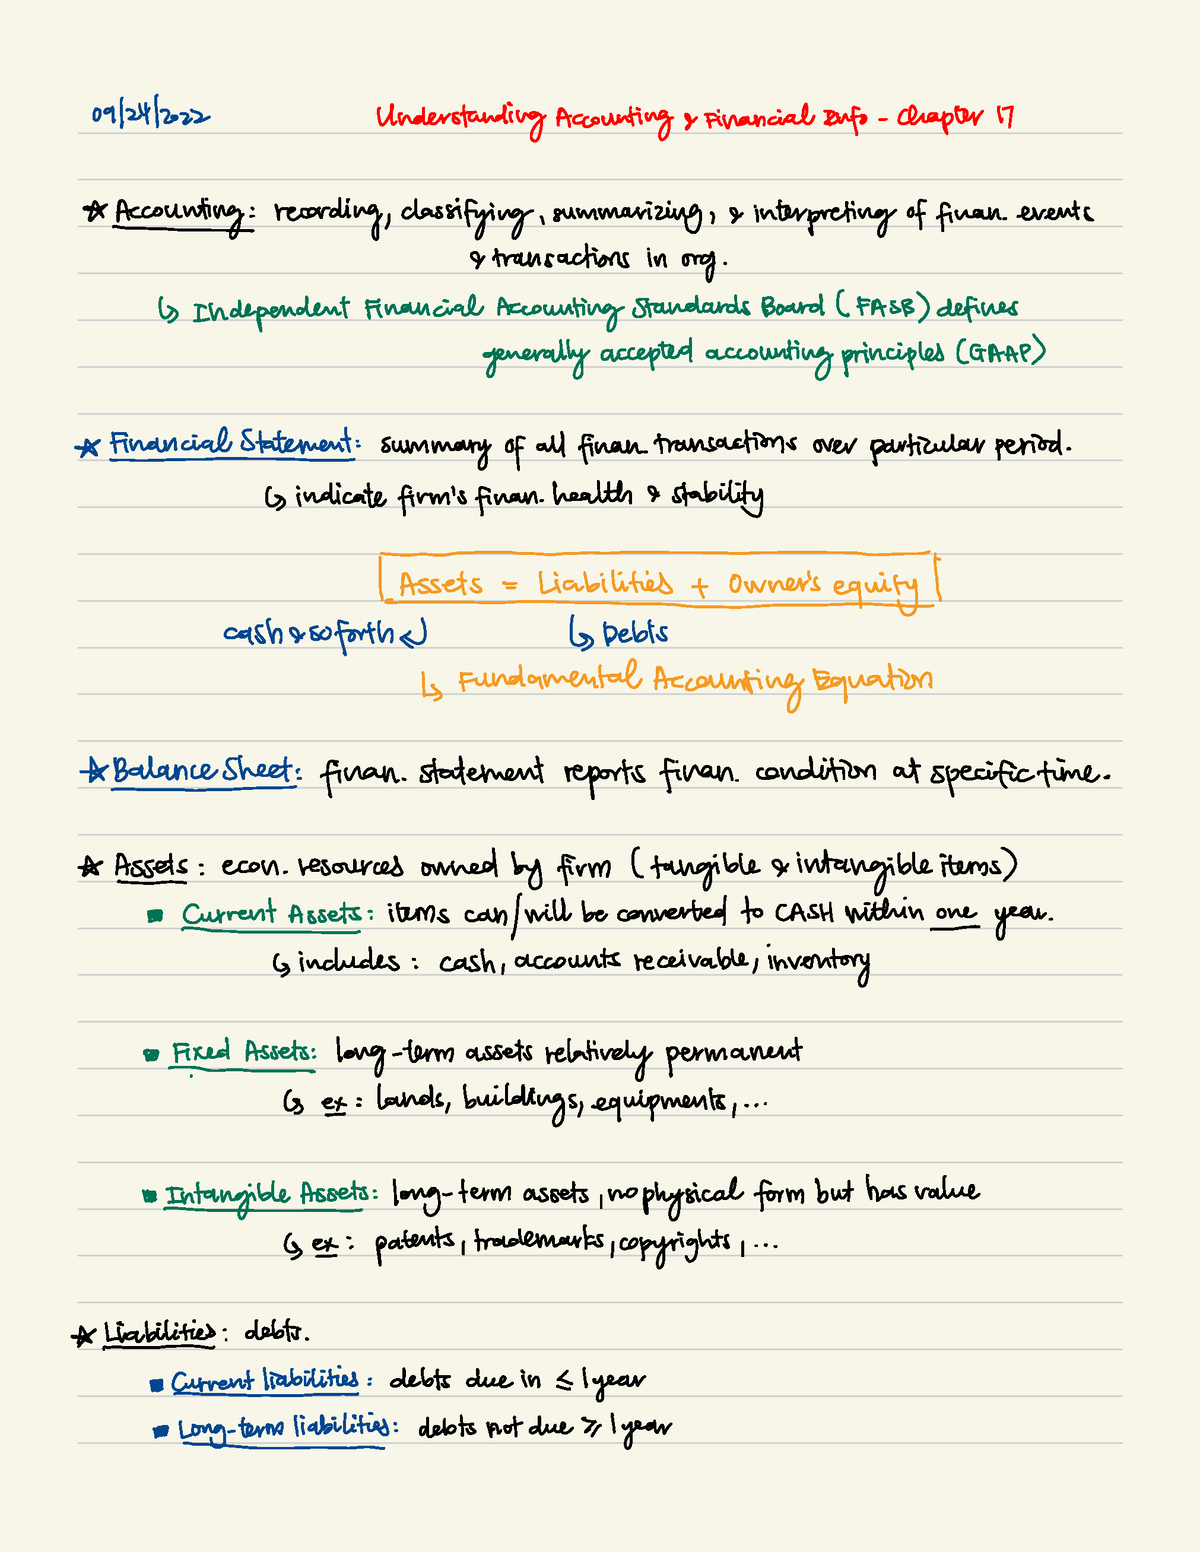 09/24/2022 Understanding Accounting & Financial Info - Chapter 17
☆ Accounting: recording, classifying, summarizing, & interpreting of finan. events
& transactions in org.
↳ Independent Financial Accounting Standards Board (FASB) defines
generally accepted accounting principles (GAAP)
☆ Financial Statement: summary of all finan. transactions over particular period.
↳ indicate firm's finan. health & stability
Assets = Liabilities + Owner's equity
cash & so forth ↲ ↳ Debts
↳ Fundamental Accounting Equation
☆ Balance Sheet: finan. statement reports finan. condition at specific time.
☆ Assets: econ. resources owned by firm (tangible & intangible items)
▪ Current Assets: items can/will be converted to CASH within one year.
↳ includes: cash, accounts receivable, inventory
▪ Fixed Assets: long-term assets relatively permanent
↳ ex: lands, buildings, equipments, ...
▪ Intangible Assets: long-term assets, no physical form but has value
↳ ex: patents, trademarks, copyrights, ...
☆ Liabilities: debts.
▪ Current liabilities: debts due in ≤ 1 year
▪ Long-term liabilities: debts not due ≥ 1 year